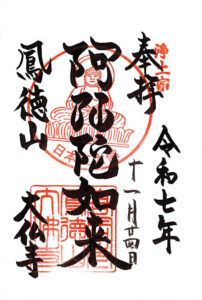 浄土宗
奉拝
令和七年
十一月廿四日
阿弥陀如来
日本
鳳徳山
大仏寺